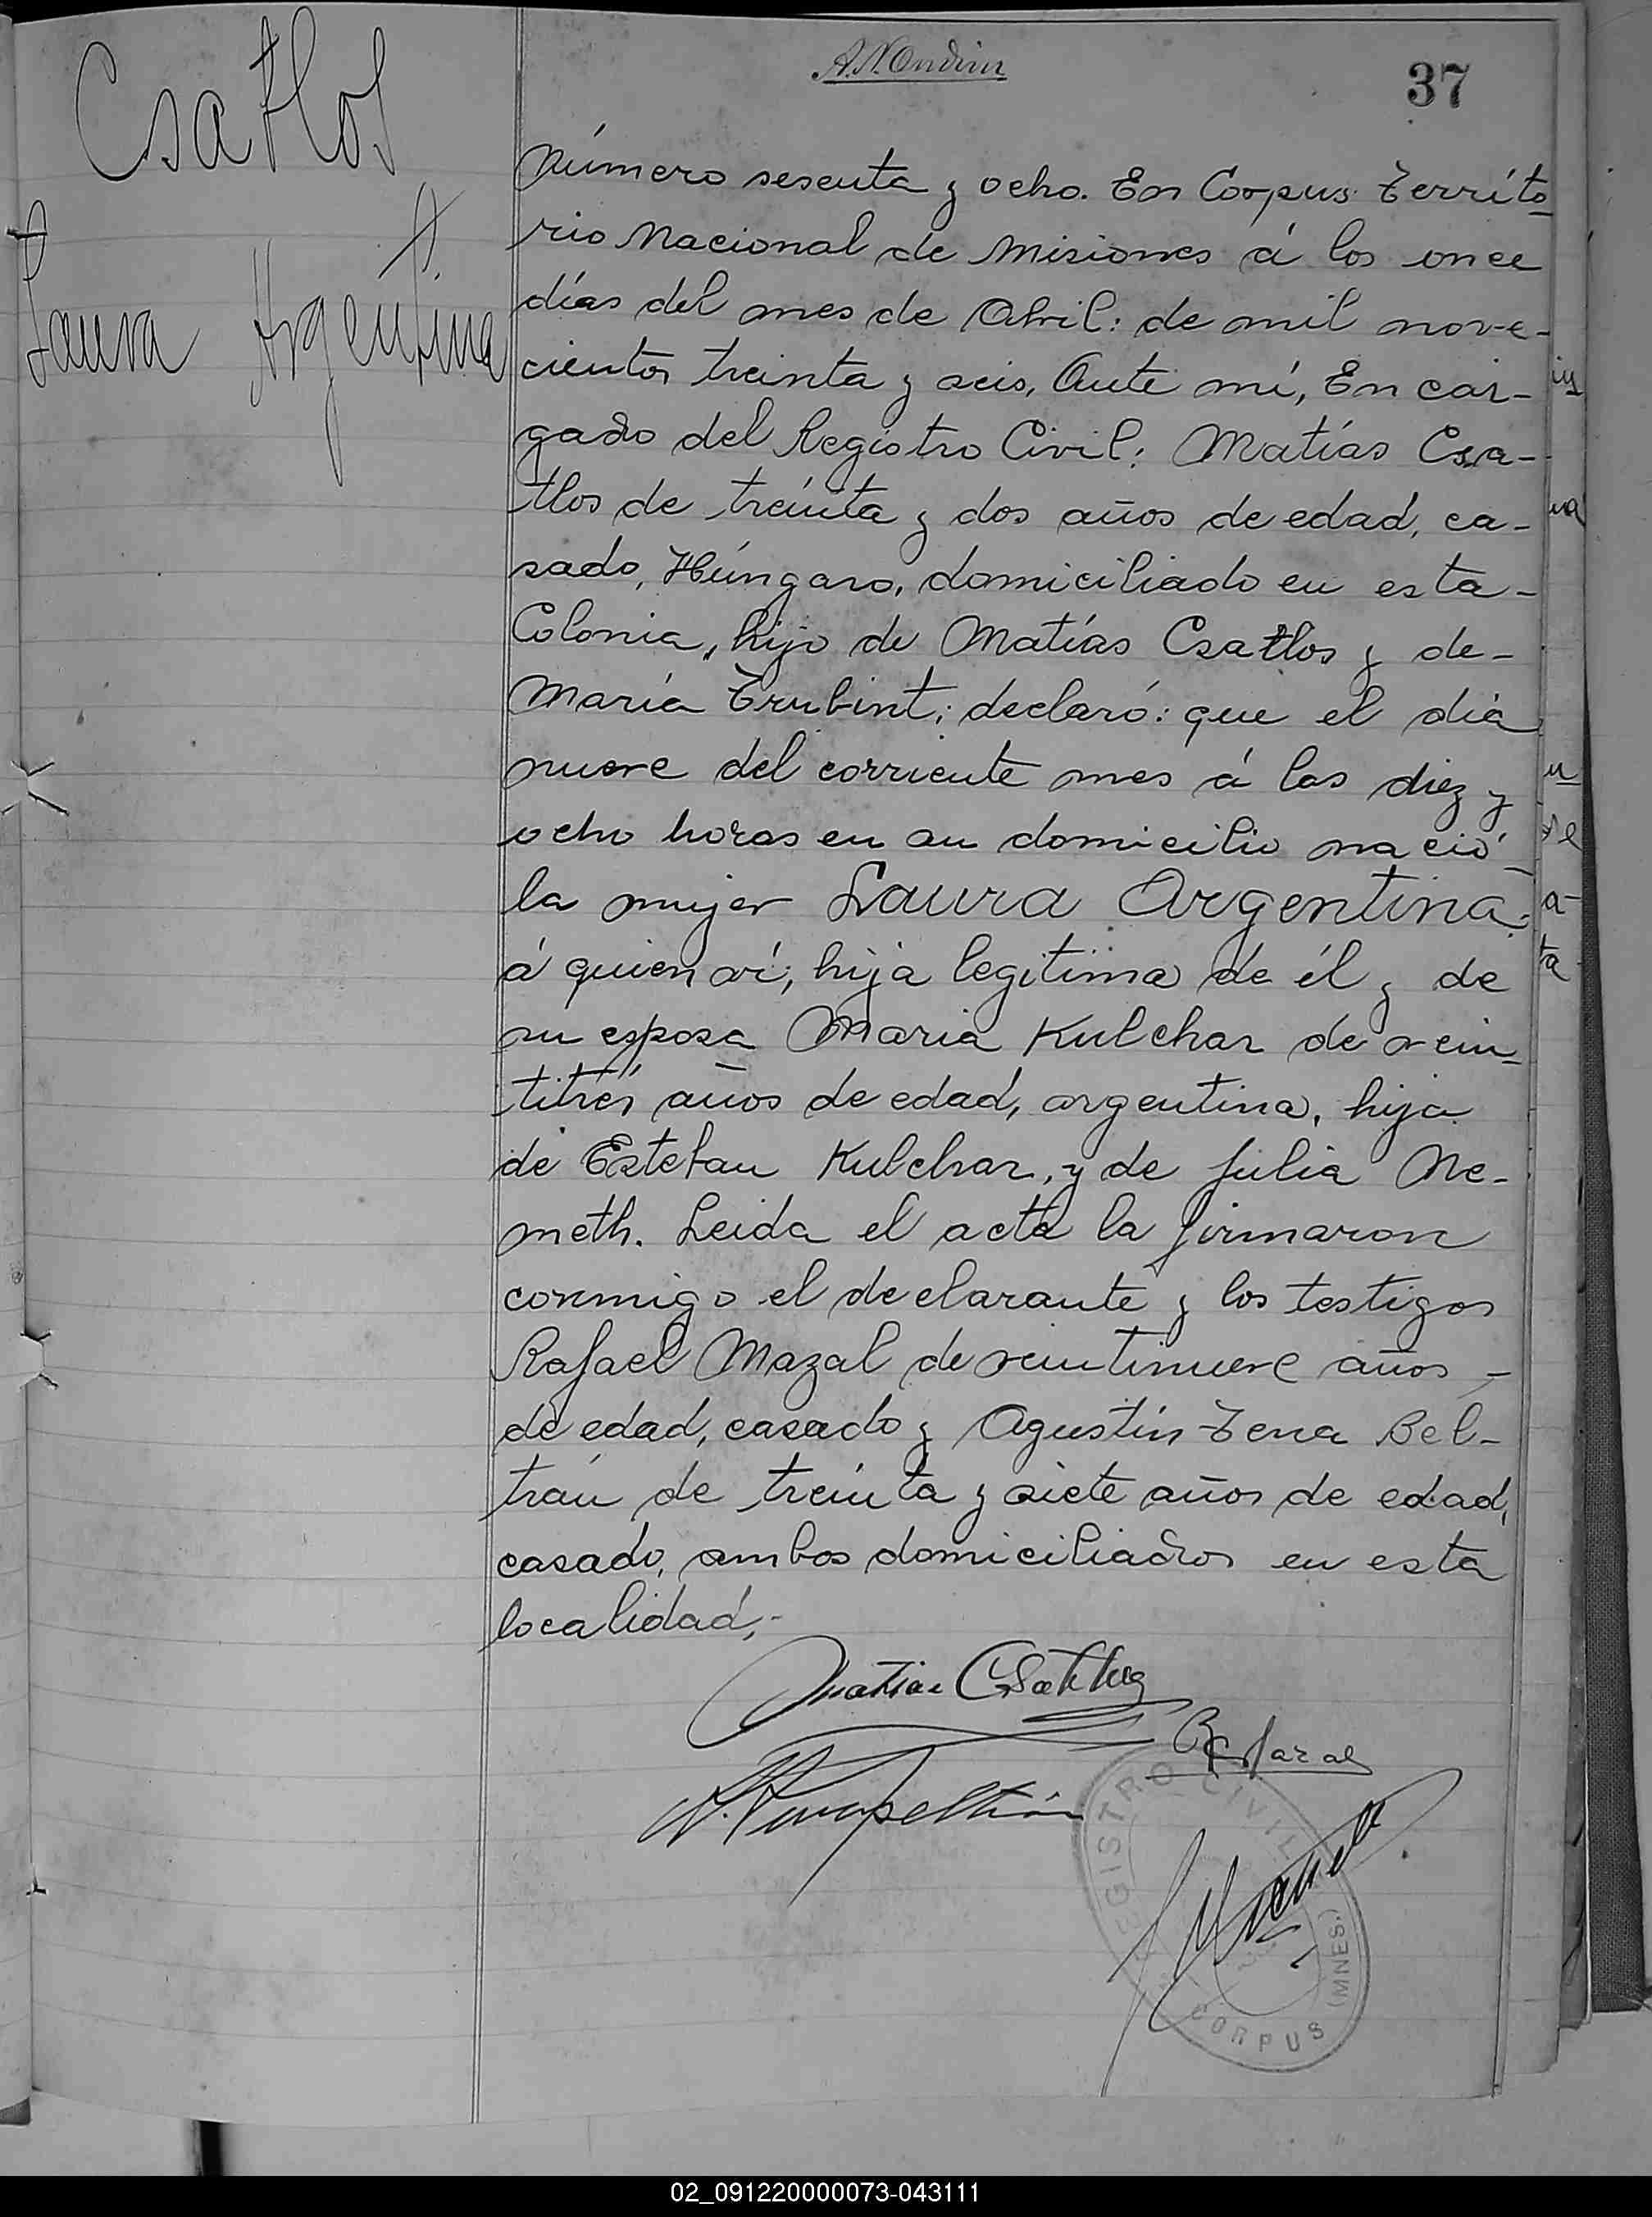 Csatlos
Laura Argentina
37
Número sesenta y ocho. En Corpus Territo-
rio Nacional de Misiones á los once
días del mes de Abril: de mil nove-
cientos treinta y seis, Ante mí, Encar-
gado del Registro Civil: Matías Csa-
tlos de treinta y dos años de edad, ca-
sado, Húngaro, domiciliado en esta-
Colonia, hijo de Matías Csatlos y de-
María Trubint; declaró: que el día
nueve del corriente mes á las diez y
ocho horas en su domicilio nació-
la mujer Laura Argentina.
á quien ví, hija legitima de él y de
su esposa Maria Kulchar de vein-
titrés años de edad, argentina, hija
de Esteban Kulchar, y de Julia Ne-
meth. Leida el acta la firmaron
conmigo el declarante y los testigos
Rafael Mazal de veintinueve años -
de edad, casado y Agustín Tena Bel-
trán de treinta y siete años de edad,
casado, ambos domiciliados en esta
localidad,-
Matias Csatlos
REGISTRO CIVIL
CORPUS (MNES.)
02_091220000073-043111